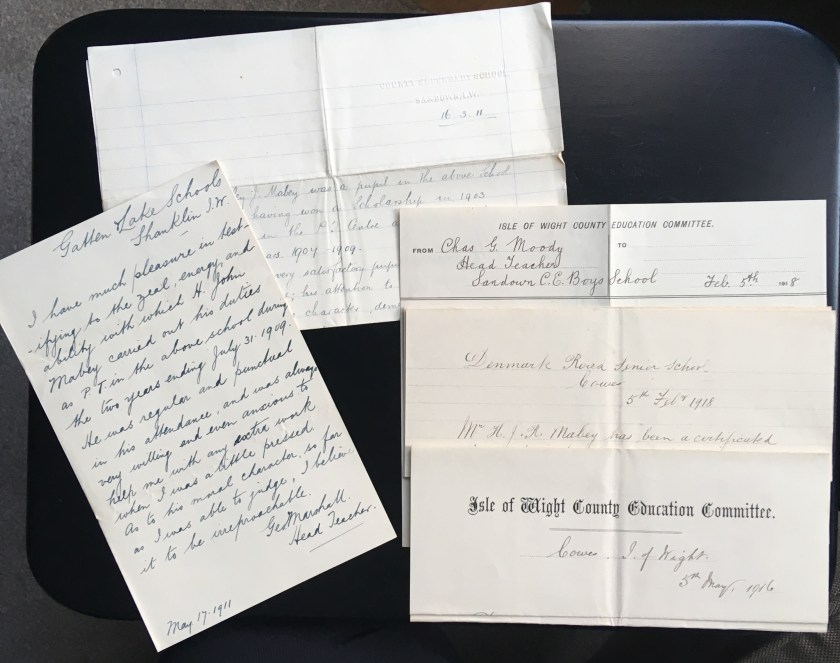 COUNTY SECONDARY SCHOOL
SANDOWN, I.W.
16. 3. 11
J. Mabey was a pupil in the above School
having won a Scholarship in 1903
in the P.T. Centre
1907 - 1909.
very satisfactory
his attention to
character
Gatten Lake Schools
Shanklin I.W.
I have much pleasure in test-
-ifying to the zeal, energy, and
ability with which H. John
Mabey carried out his duties
as P.T. in the above school during
the two years ending July 31. 1909.
He was regular and punctual
in his attendance, and was always
very willing and even anxious to
help me with any extra work
when I was a little pressed
As to his moral character, so far
as I was able to judge, I believe
it to be irreproachable.
Geo Marshall.
Head Teacher.
May 17. 1911
ISLE OF WIGHT COUNTY EDUCATION COMMITTEE.
FROM Chas G. Moody TO
Head Teacher
Sandown C.E. Boys School Feb. 5th 1918
Denmark Road Senior School
Cowes
5th Feby 1918
Mr H. J. R. Mabey has been a certificated
Isle of Wight County Education Committee.
Cowes I. of Wight.
5th May, 1916